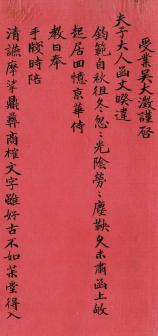 受業吳大澂謹啓
夫子大人函丈睽違
鈞範自秋徂冬忽忽光陰勞勞塵鞅久未肅函上敂
起居回憶京華侍
教日奉
手牋時陪
清讌摩挲鼎彝商榷文字雖好古不如某堂得入